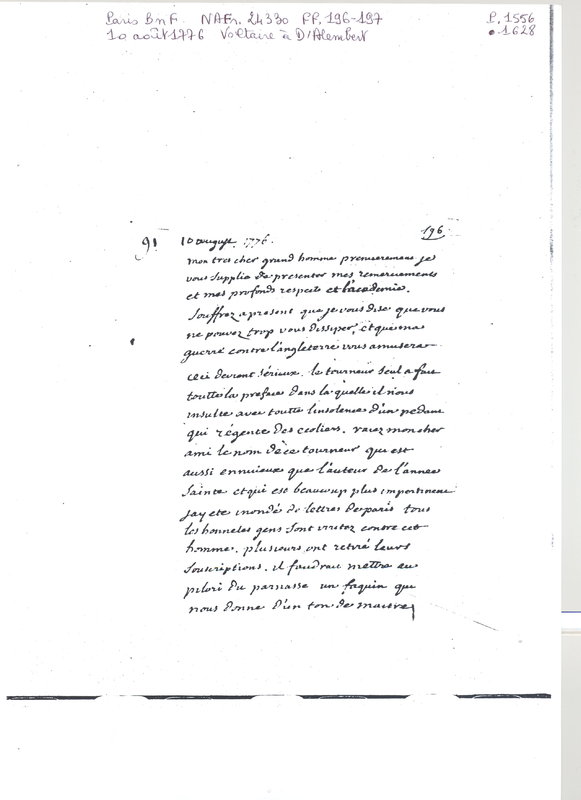 Paris BnF. NAFr. 24330 FF. 196-197 P. 1556
10 août 1776 Voltaire à D'Alembert • 1628
91 10 auguste 1776. 196
mon tres cher grand homme premierement je
vous supplie de presenter mes remerciements
et mes profonds respects et l'academie.
Souffrez a present que je vous dise que vous
ne pouvez trop vous dissiper, et que ma
guerre contre l'angleterre vous amusera
ceci devient serieux. le tourneur seul a fait
toutte la preface dans la quelle il nous
insulte avec toutte l'insolence d'un pedant
qui régence des ecoliers. mon cher
ami le nom de ce tourneur qui est
aussi ennuieux que l'auteur de l'année
Sainte et qui est beaucoup plus impertinent
jay eté inondé de lettres de paris tous
les honnetes gens sont irritez contre cet
homme. plusieurs ont retiré leurs
souscriptions. il faudrait mettre au
pilori du parnasse un faquin qui
nous donne d'un ton de maitre